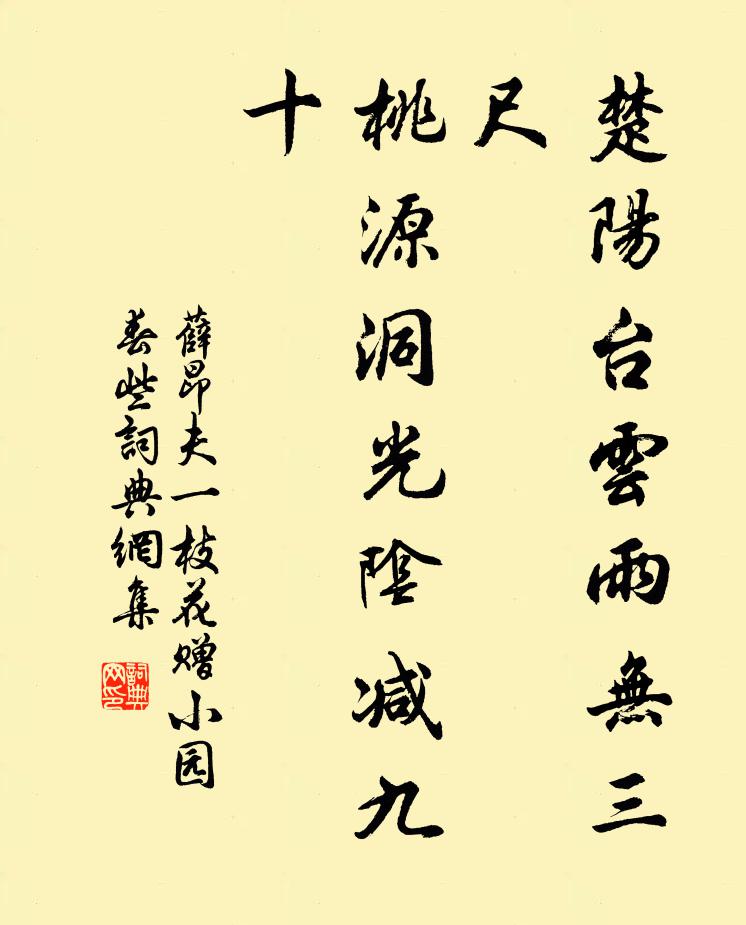 楚陽台雲雨無三
尺
桃源洞光陰減九
十
薛昂夫一枝花赠小园
春些詞典網集
詞典网印